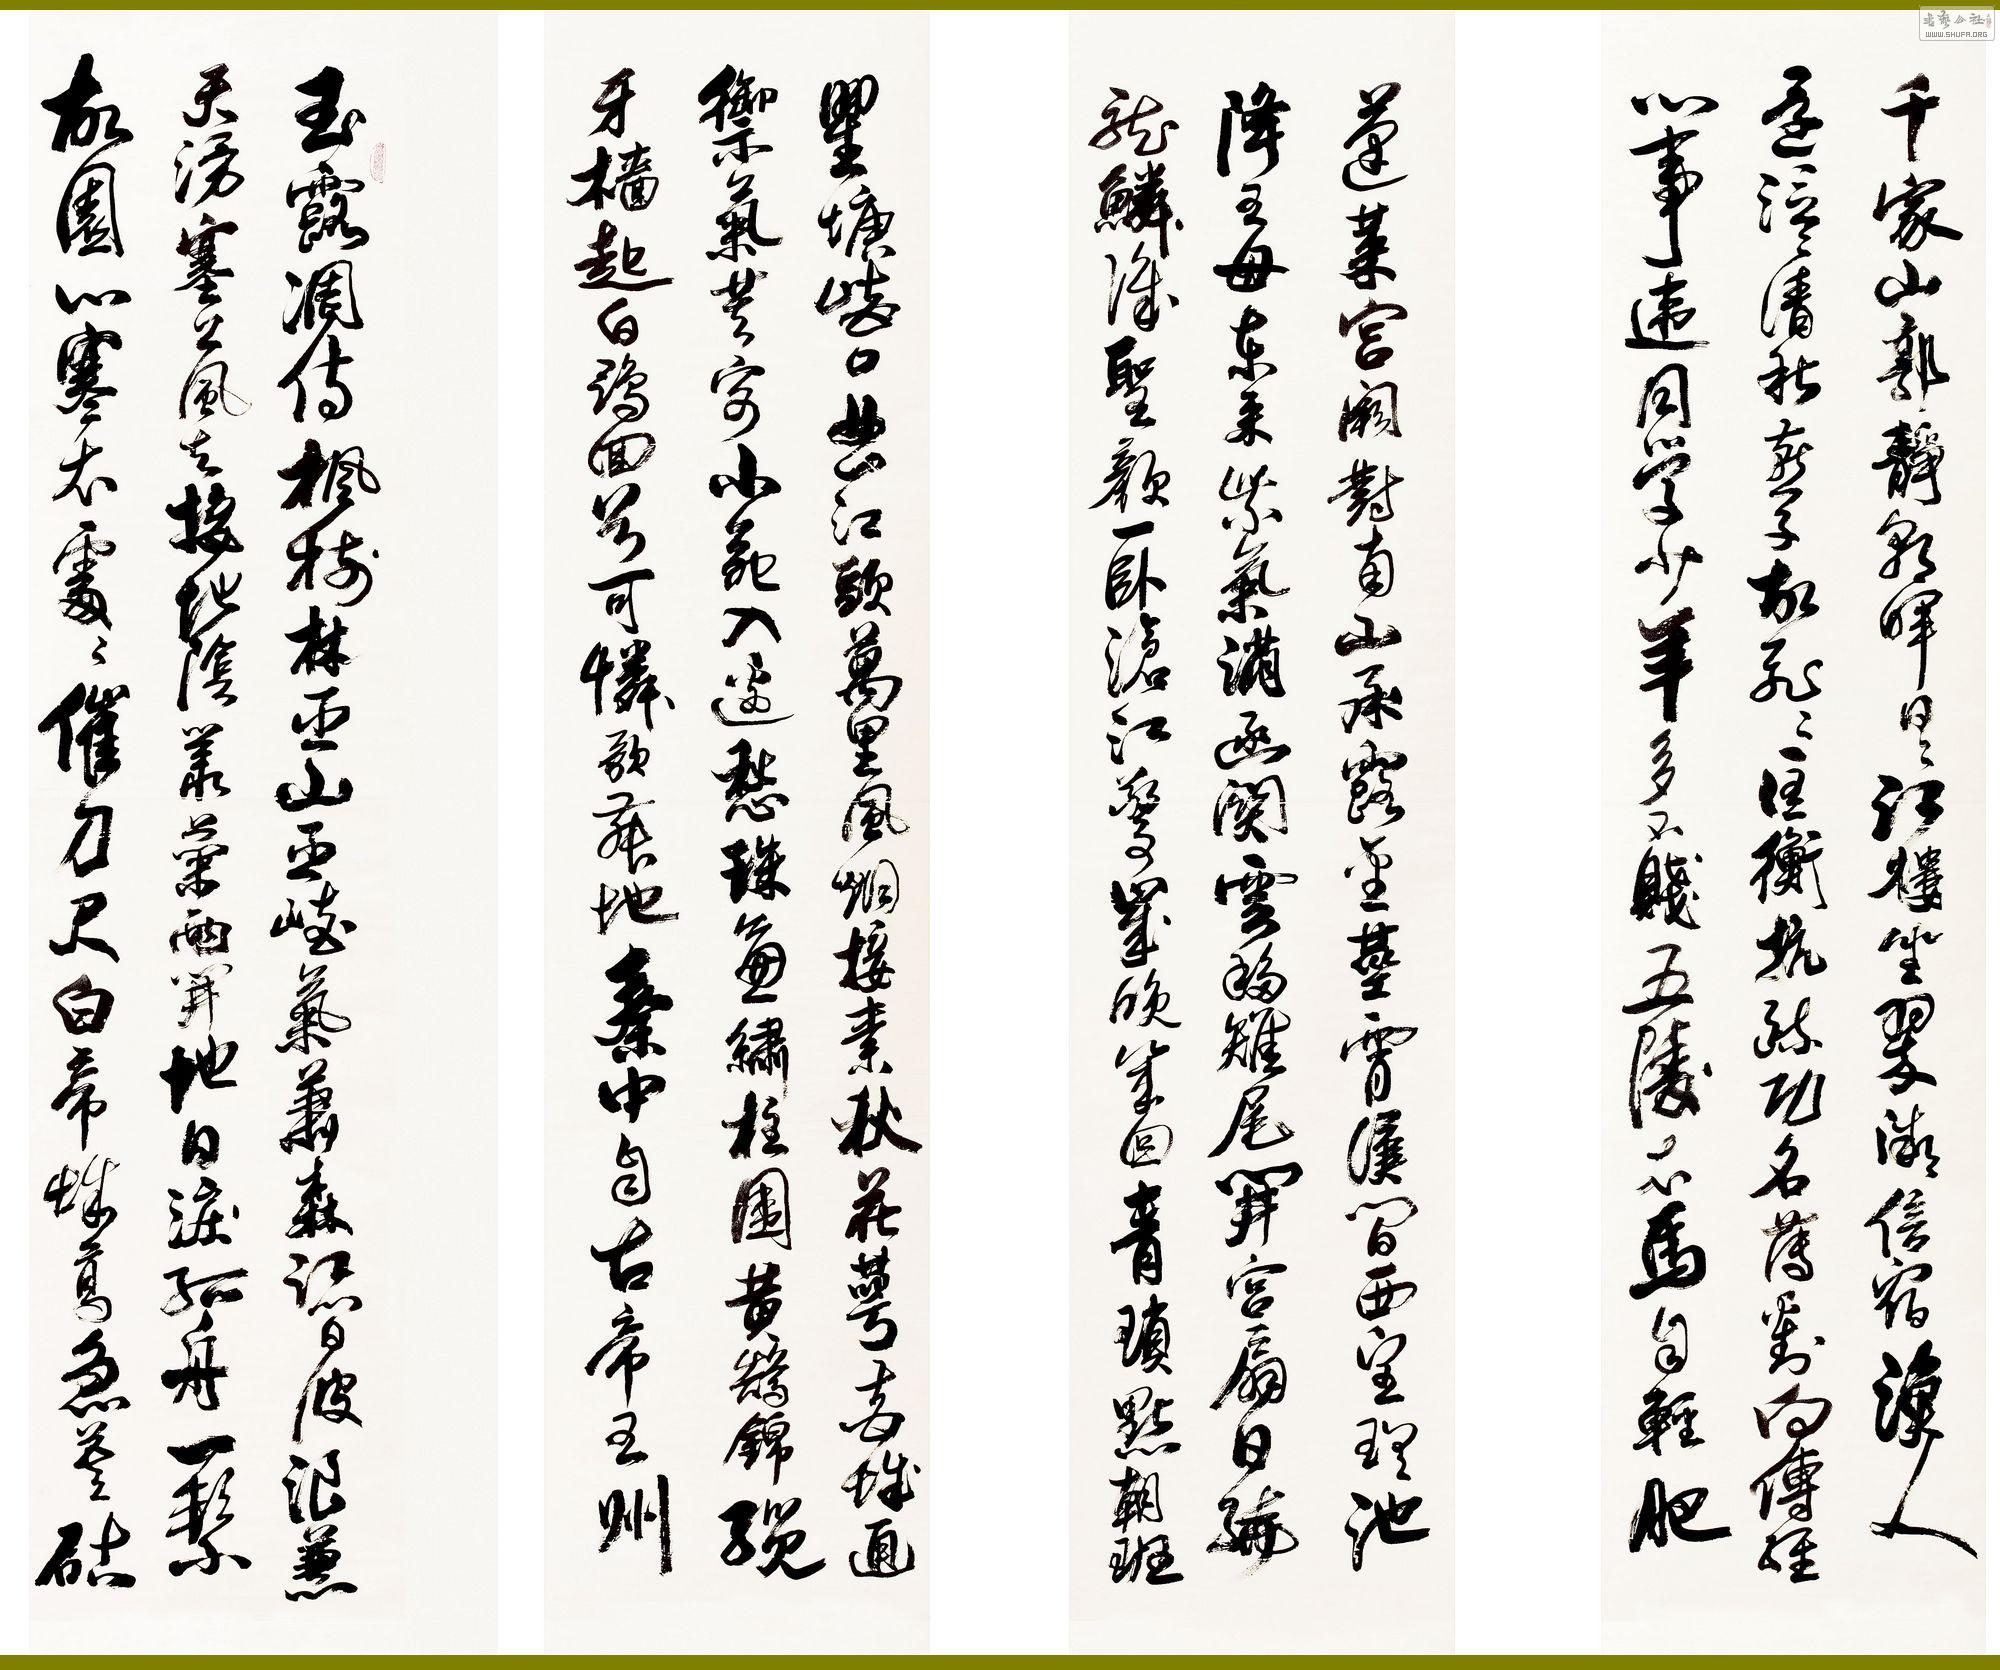 千家山郭靜朝暉日日江樓坐翠微信宿漁人
還泛泛清秋燕子故飛飛匡衡抗疏功名薄劉向傳經
心事違同學少年多不賤五陵衣馬自輕肥
蓬萊宮闕對南山承露金莖霄漢間西望瑤池
降王母東來紫氣滿函關雲移雉尾開宮扇日繞
龍鱗識聖顏一臥滄江驚歲晚幾回青瑣點朝班
瞿塘峽口曲江頭萬里風烟接素秋花萼夾城通
禦氣芙蓉小苑入邊愁珠簾繡柱圍黃鵠錦纜
牙檣起白鷗回首可憐歌舞地秦中自古帝王州
玉露凋傷楓樹林巫山巫峽氣蕭森江間波浪兼
天湧塞上風雲接地陰叢菊兩開他日淚孤舟一繫
故園心寒衣處處催刀尺白帝城高急暮砧
书艺公社
WWW.SHUFA.ORG